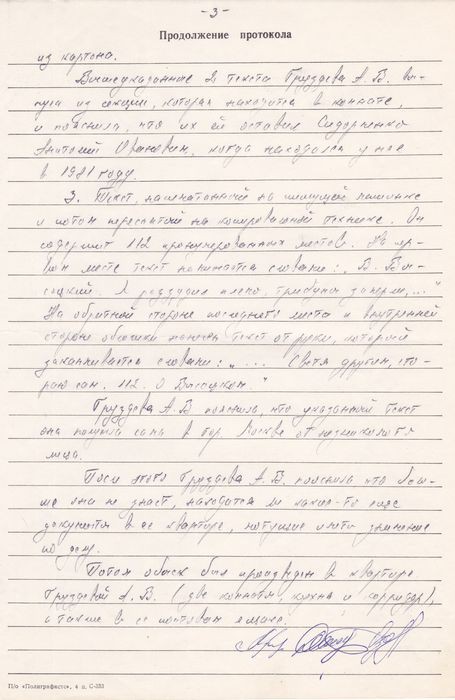 - 3 -
Продолжение протокола
из картона.
Вышеуказанные 2 текста Груздева А. В. вы-
нула из секции, которая находится в комнате,
и пояснила, что их ей оставил Сидоренко
Анатолий, когда находился у нее
в 1981 году.
3. Текст, напечатанный на пишущей машинке
и потом переснятый на копировальной технике. Он
содержит 112 пронумерованных листов. На пер-
вом листе текст начинается словами: „В. Вы-
соцкий. Я раздвигал плечом, трибуны замерли, ..."
На обратной стороне последнего листа и внутренней
стороне обложки нанесен текст от руки, который
заканчивается словами: „... Светя другим, сго-
раю сам. 112. О Высоцком."
Груздева А. В пояснила, что указанный текст
она получила сама в гор. Москве от незнакомого
лица.
После этого Груздева А. В. пояснила что боль-
ше она не знает, находятся ли какие-то еще
документы в ее квартире, могущие иметь значение
по делу.
Потом обыск был произведен в квартире
Груздевой А. В. (две комнаты, кухня и коридор),
а также в ее почтовом ящике.
П/о «Полиграфист», 4 п. С-333